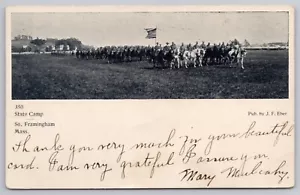 193
State Camp
So. Framingham
Mass.
Pub. by J. F. Eber
Thank you very much for your beautiful
card. I am very grateful I assure you
Mary Mulcahy.